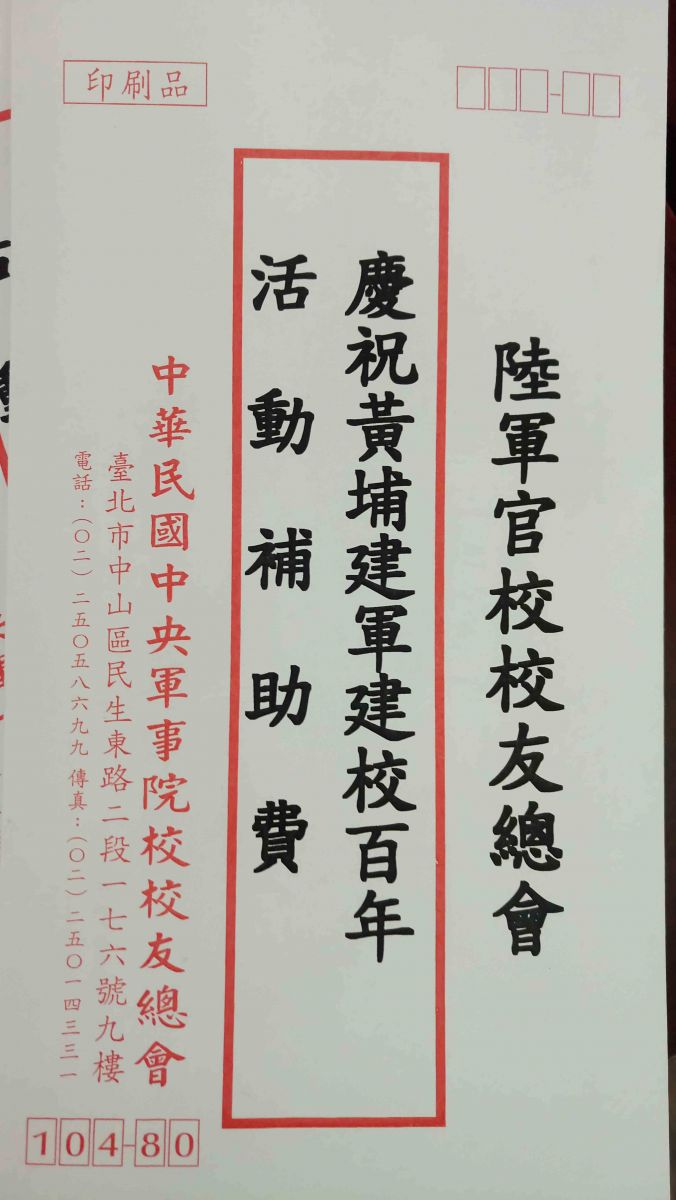 印刷品
陸軍官校校友總會
慶祝黃埔建軍建校百年
活動補助費
中華民國中央軍事院校校友總會
臺北市中山區民生東路二段一七六號九樓
電話：（〇二）二五〇五八六九九 傳真：（〇二）二五〇一四三三一
104-80